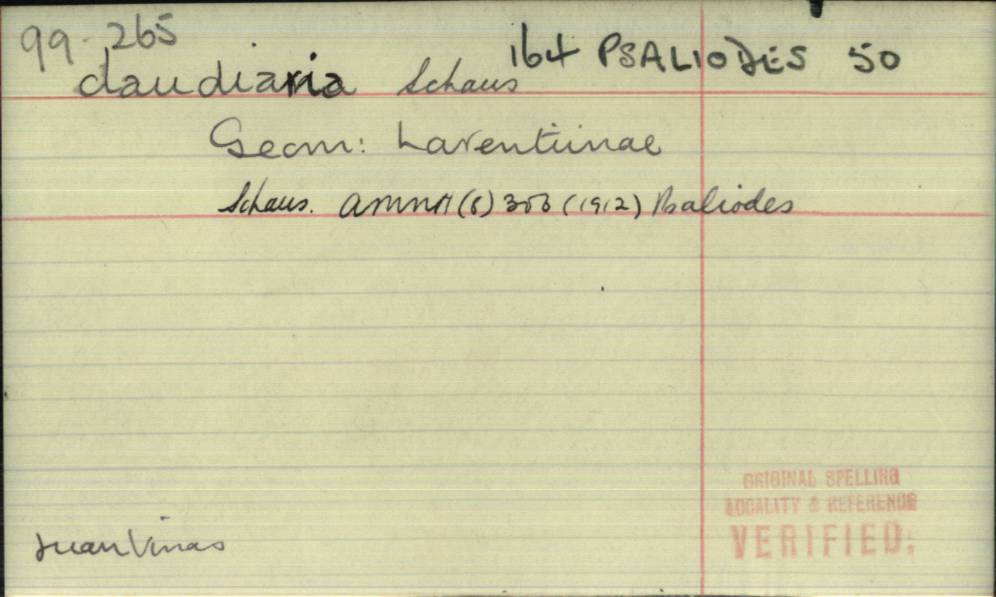 99-265
164 PSALIODES 50
claudiaria Schaus
Geom: Larentiinae
Schaus. AMNH (8) 303 (1912) Psaliodes
Juan Vinas
ORIGINAL SPELLING
LOCALITY & REFERENCE
VERIFIED.